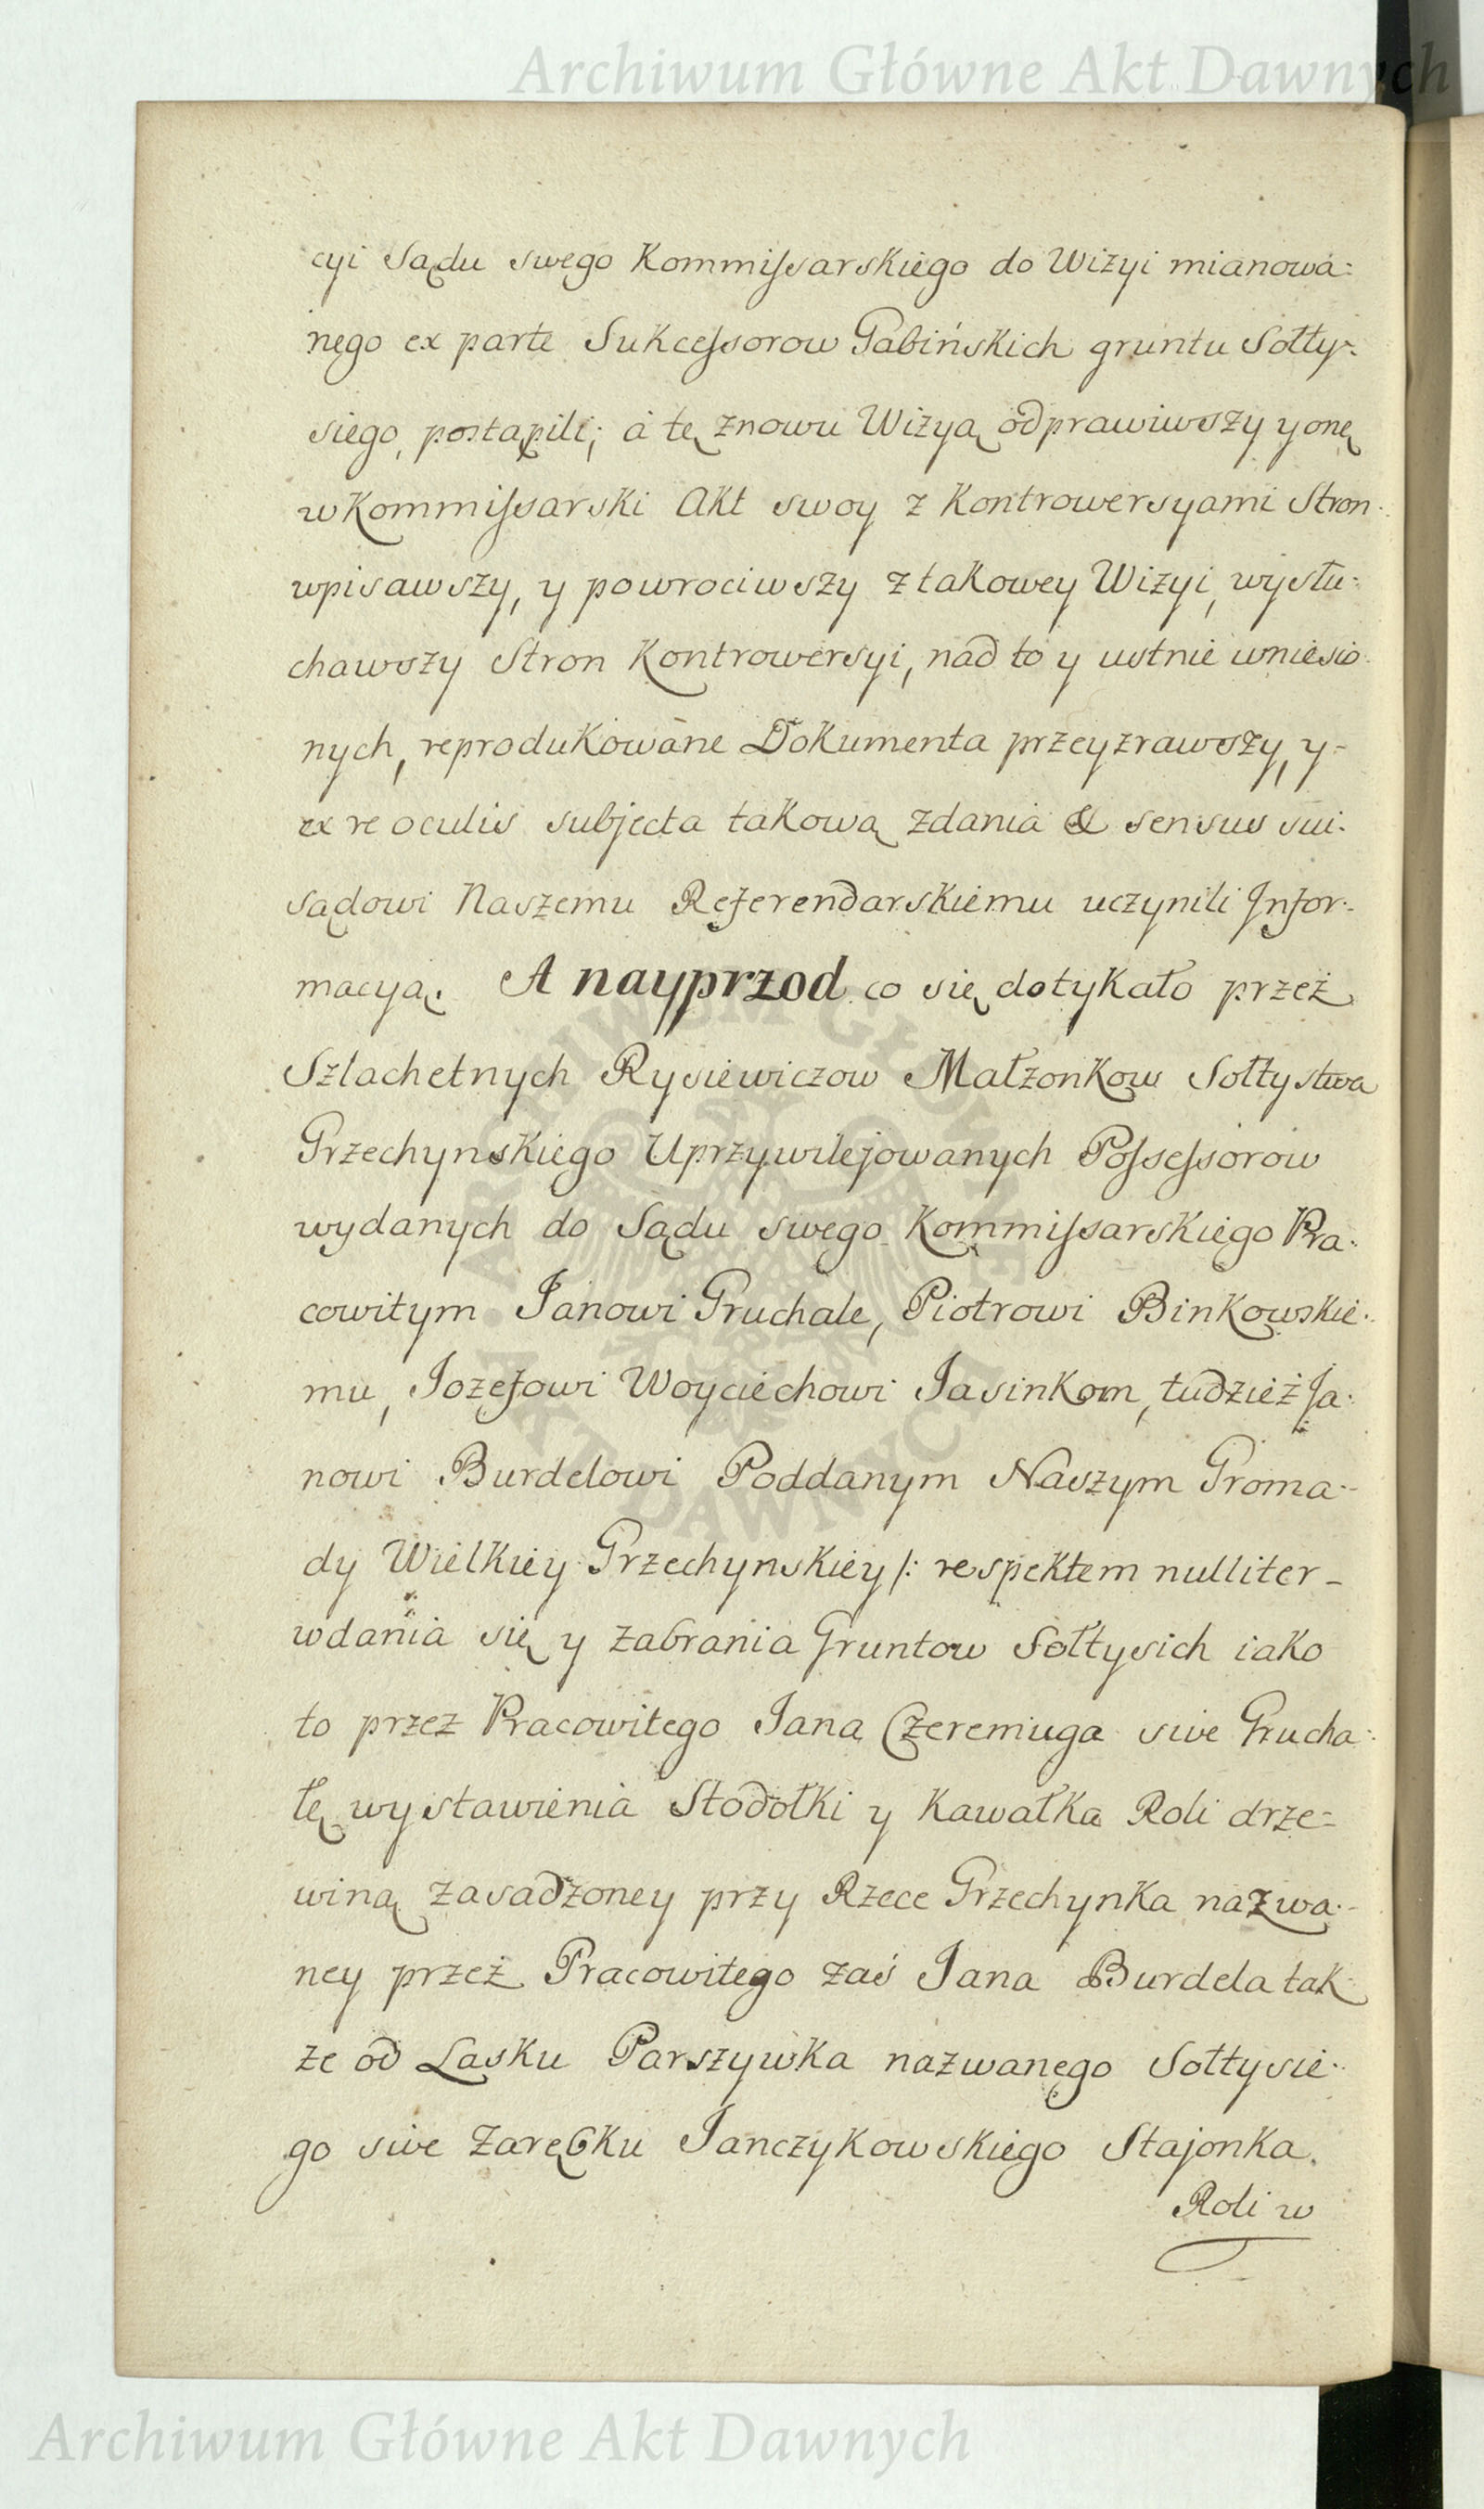 Archiwum Główne Akt Dawnych
cyi Sądu swego Kommissarskiego do Wizyi mianowa=
nego ex parte Sukcessorow Gabińskich gruntu Sołty=
siego, postąpili; á tę znowu Wizyą odprawiwszy y onę
w Kommissarski Akt swoy z Kontrowersyami Stron
wpisawszy, y powrociwszy z takowey Wizyi, wysłu=
chawszy Stron Kontrowersyi, nad to y ustnie wniesio=
nych, reprodukowane Dokumenta przeyzrawszy, y-
ex re oculis subjecta takową zdania & sensus sui
Sądowi Naszemu Referendarskiemu uczynili Infor=
macyą. A nayprzod co się dotykało przez
Szlachetnych Rysiewiczow Małzonkow Sołtystwa
Grzechynskiego Uprzywilejowanych Possessorow
wydanych do Sądu swego Kommissarskiego Pra=
cowitym Janowi Gruchale, Piotrowi Binkowskie=
mu, Jozefowi Woyciechowi Jasinkom, tudzież Ja=
nowi Burdelowi Poddanym Naszym Groma=
dy Wielkiey Grzechynskiey /: respektem nulliter-
wdania się y zabrania Gruntow Sołtysich iako
to przez Pracowitego Jana Czeremuga sive Grucha=
łę wystawienia Stodołki y kawałka Roli drze=
winą zasadzoney przy Rzece Grzechynka nazwa=
ney przez Pracowitego zaś Jana Burdela tak
ze od Lasku Parszywka nazwanego Sołtysie=
go sive Zarębku Janczykowskiego Stajonka
Roli w
Archiwum Główne Akt Dawnych